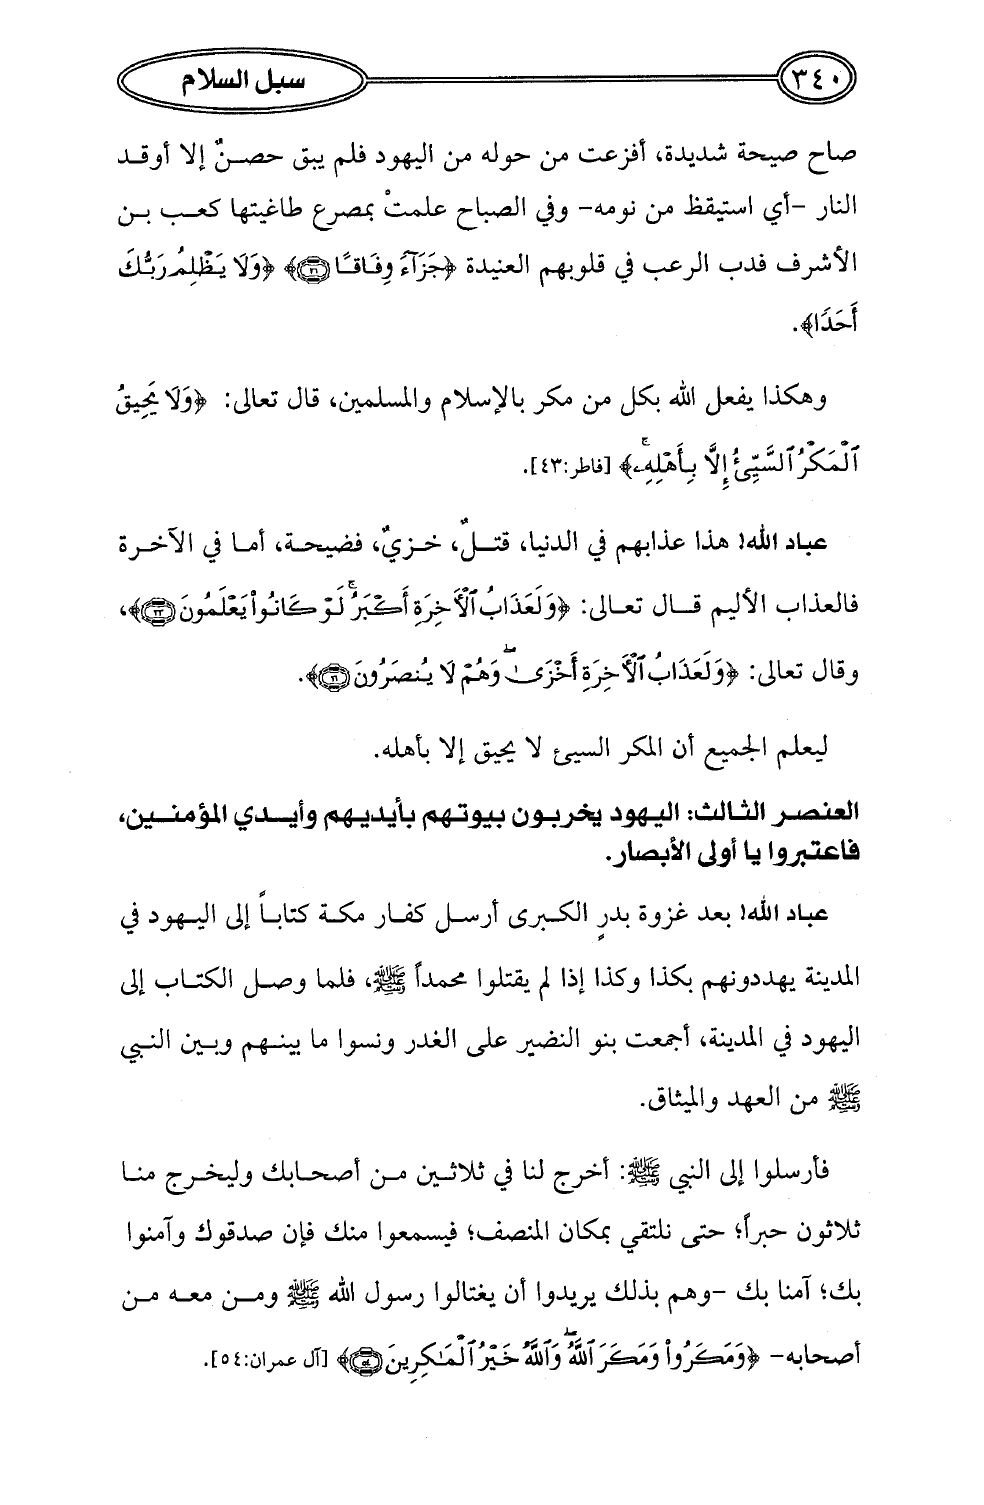 ٣٤٠
سبل السلام
صاح صيحة شديدة، أفزعت من حوله من اليهود فلم يبق حصنٌ إلا أوقد
النار -أي استيقظ من نومه- وفي الصباح علمتْ بمصرع طاغيتها كعب بن
الأشرف فدب الرعب في قلوبهم العنيدة ﴿جَزَآءً وِفَاقًا ۝٢٦﴾ ﴿وَلَا يَظْلِمُ رَبُّكَ
أَحَدًا﴾.
وهكذا يفعل الله بكل من مكر بالإسلام والمسلمين، قال تعالى: ﴿وَلَا يَحِيقُ
ٱلْمَكْرُ ٱلسَّيِّئُ إِلَّا بِأَهْلِهِۦۚ﴾ [فاطر:٤٣].
عباد الله! هذا عذابهم في الدنيا، قتلٌ، خزيٌ، فضيحة، أما في الآخرة
فالعذاب الأليم قال تعالى: ﴿وَلَعَذَابُ ٱلْأَخِرَةِ أَكْبَرُۚ لَوْ كَانُوا۟ يَعْلَمُونَ ۝٣٣﴾،
وقال تعالى: ﴿وَلَعَذَابُ ٱلْأَخِرَةِ أَخْزَىٰۖ وَهُمْ لَا يُنصَرُونَ ۝١٦﴾.
ليعلم الجميع أن المكر السيئ لا يحيق إلا بأهله.
العنصر الثالث: اليهود يخربون بيوتهم بأيديهم وأيدي المؤمنين،
فاعتبروا يا أولى الأبصار.
عباد الله! بعد غزوة بدرٍ الكبرى أرسل كفار مكة كتاباً إلى اليهود في
المدينة يهددونهم بكذا وكذا إذا لم يقتلوا محمداً ﷺ، فلما وصل الكتاب إلى
اليهود في المدينة، أجمعت بنو النضير على الغدر ونسوا ما بينهم وبين النبي
ﷺ من العهد والميثاق.
فأرسلوا إلى النبي ﷺ: أخرج لنا في ثلاثين من أصحابك وليخرج منا
ثلاثون حبراً؛ حتى نلتقي بمكان المنصف؛ فيسمعوا منك فإن صدقوك وآمنوا
بك؛ آمنا بك -وهم بذلك يريدوا أن يغتالوا رسول الله ﷺ ومن معه من
أصحابه- ﴿وَمَكَرُوا۟ وَمَكَرَ ٱللَّهُۖ وَٱللَّهُ خَيْرُ ٱلْمَٰكِرِينَ ۝٥٤﴾ [آل عمران:٥٤].